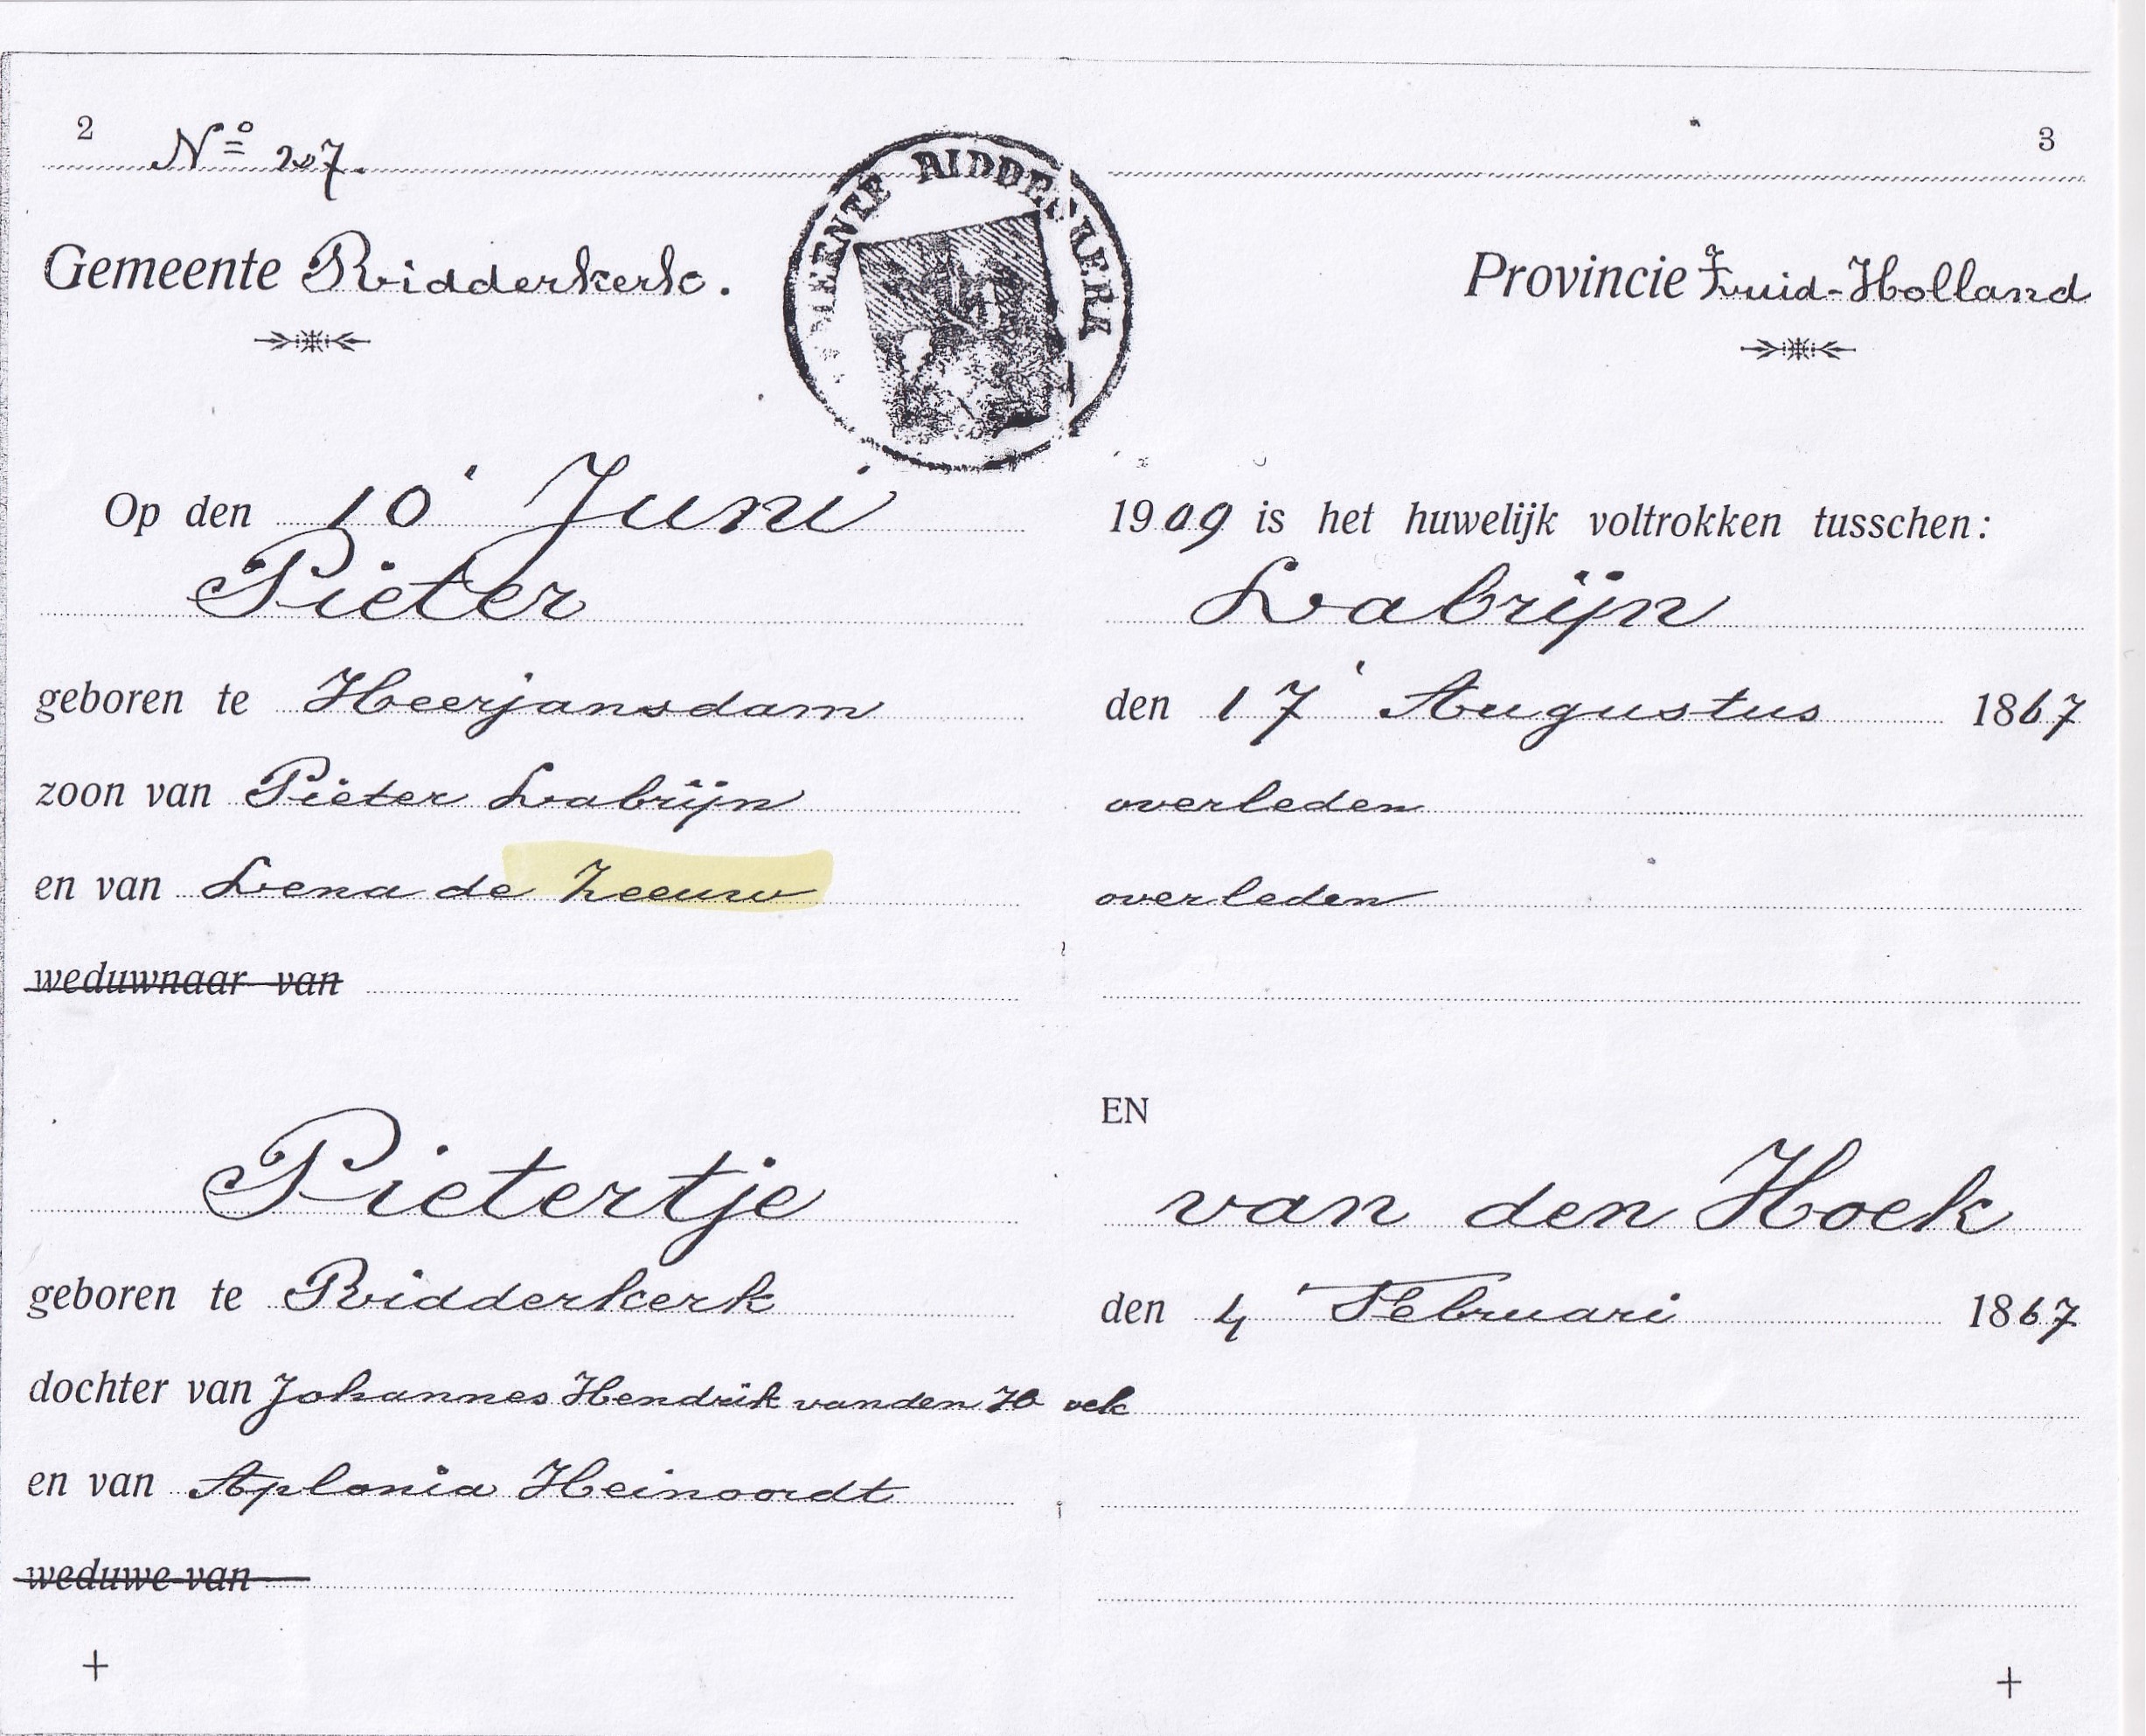 2 Nº 207. 3
GEMEENTE RIDDERKERK
Gemeente Ridderkerk. Provincie Zuid-Holland
Op den 10' Juni 1909 is het huwelijk voltrokken tusschen:
Pieter Labrijn
geboren te Heerjansdam den 17' Augustus 1867
zoon van Pieter Labrijn overleden
en van Lena de Zeeuw overleden
weduwnaar van
EN
Pietertje van den Hoek
geboren te Ridderkerk den 4' Februari 1867
dochter van Johannes Hendrik van den Hoek
en van Aplonia Heinoordt
weduwe van